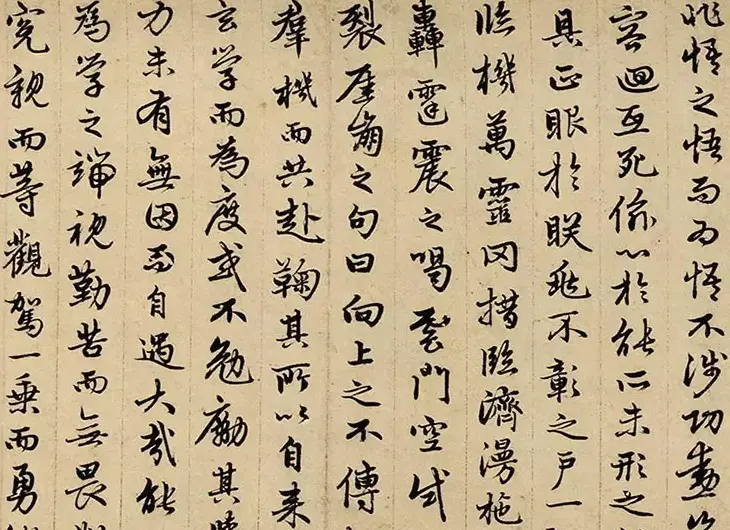 非悟之悟而为悟不涉功勲
容迴互死偷心於能所未形之
具正眼於朕兆不彰之戶一
临機萬靈罔措临濟漫施
轟霆震之喝雲門空
裂崖崩之句曰向上之不傳
羣機而共赴鞠其所以自来
玄學而為度或不勉勵其
力未有無因而自遇大哉能
為学之端視勤苦而無畏
冤親而等觀駕一乗而勇